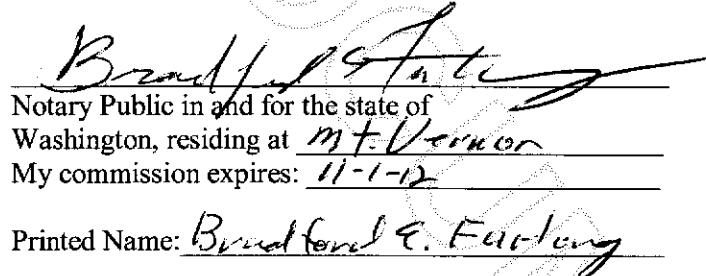 Bradford E Furlong
Notary Public in and for the state of
Washington, residing at Mt. Vernon
My commission expires: 11-1-12
Printed Name: Bradford E. Furlong